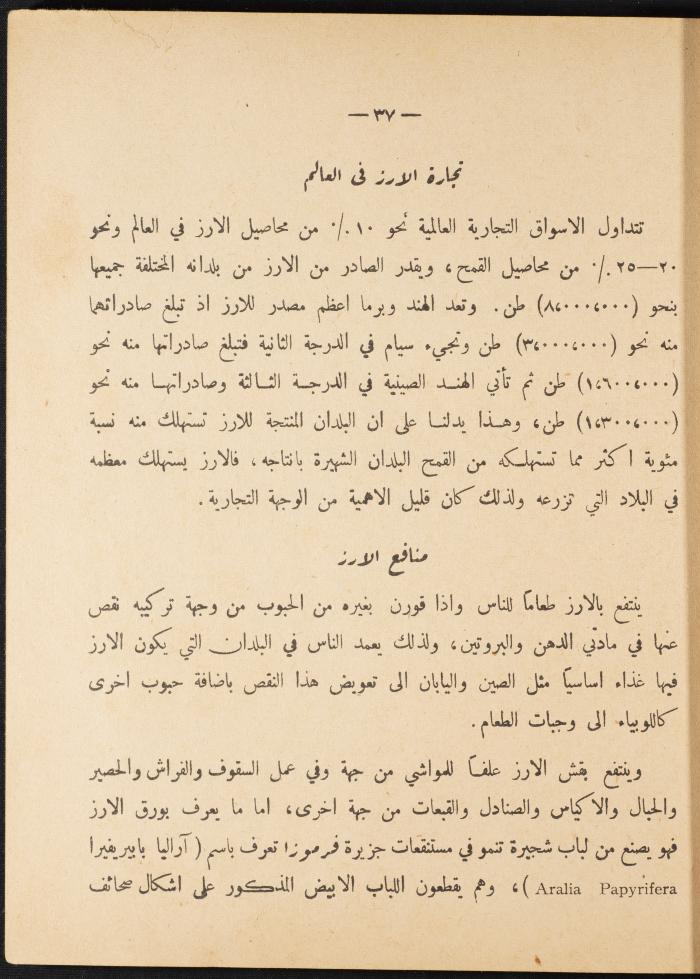 — ٣٧ —
تجارة الارز في العالم
تتداول الاسواق التجارية العالمية نحو ١٠ ٪ من محاصيل الارز في العالم ونحو
٢٠—٢٥ ٪ من محاصيل القمح، ويقدر الصادر من الارز من بلدانه المختلفة جميعها
بنحو (٨،٠٠٠،٠٠٠) طن. وتعد الهند وبرما اعظم مصدر للارز اذ تبلغ صادراتهما
منه نحو (٣،٠٠٠،٠٠٠) طن وتجيء سيام في الدرجة الثانية فتبلغ صادراتها منه نحو
(١،٦٠٠،٠٠٠) طن ثم تأتي الهند الصينية في الدرجة الثالثة وصادراتها منه نحو
(١،٣٠٠،٠٠٠) طن، وهذا يدلنا على ان البلدان المنتجة للارز تستهلك منه نسبة
مئوية اكثر مما تستهلكه من القمح البلدان الشهيرة بانتاجه، فالارز يستهلك معظمه
في البلاد التي تزرعه ولذلك كان قليل الاهمية من الوجهة التجارية.
منافع الارز
ينتفع بالارز طعاماً للناس واذا قورن بغيره من الحبوب من وجهة تركيبه نقص
عنها في مادتي الدهن والبروتين، ولذلك يعمد الناس في البلدان التي يكون الارز
فيها غذاء اساسياً مثل الصين واليابان الى تعويض هذا النقص باضافة حبوب اخرى
كاللوبياء الى وجبات الطعام.
وينتفع بقش الارز علفاً للمواشي من جهة وفي عمل السقوف والفراش والحصير
والحبال والاكياس والصنادل والقبعات من جهة اخرى، اما ما يعرف بورق الارز
فهو يصنع من لباب شجيرة تنمو في مستنقعات جزيرة فرموزا تعرف باسم (آراليا بابيريفيرا
Aralia Papyrifera)، وهم يقطعون اللباب الابيض المذكور على اشكال صحائف